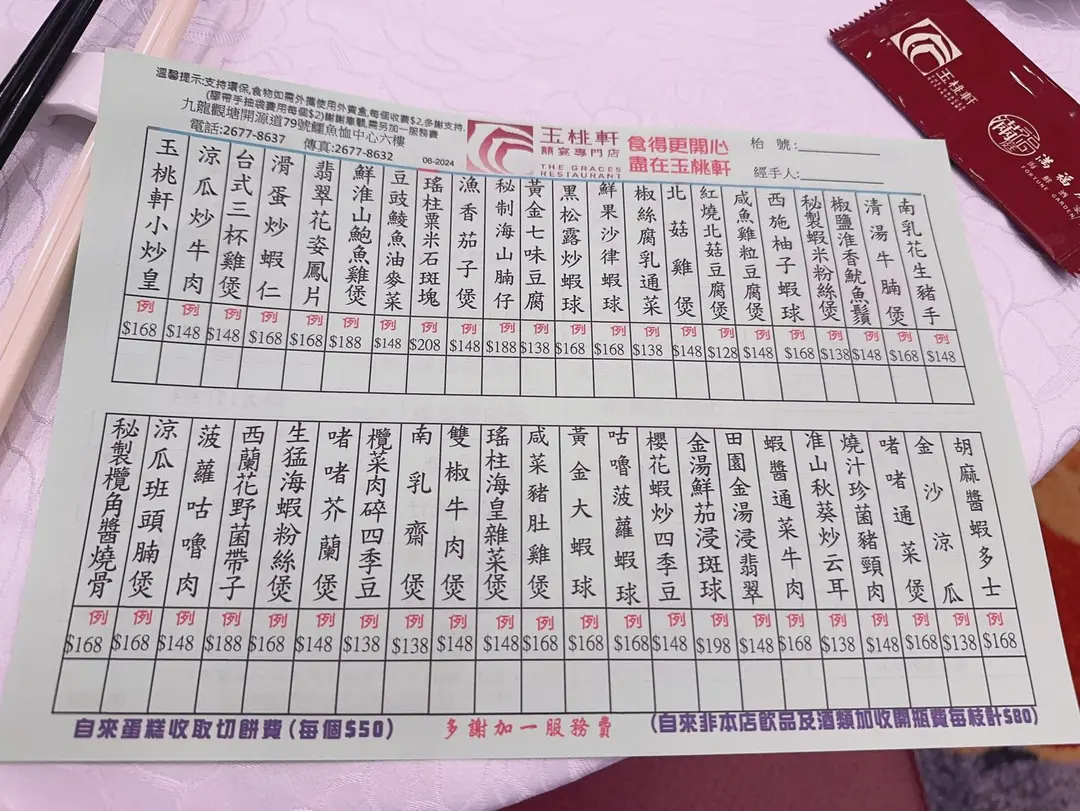 溫馨提示:支持環保,食物如需外攜使用外賣盒,每個收費$2,多謝支持.
(膠帶手抽袋費用每個$2)謝謝惠顧,需另加一服務費
九龍觀塘開源道79號鱷魚恤中心六樓
電話:2677-8637 傳真:2677-8632
06-2024
玉桃軒
囍宴專門店
THE GRACES
RESTAURANT
食得更開心
盡在玉桃軒
枱 號:
經手人:
南乳花生豬手 例 $148
清湯牛腩煲 例 $168
椒鹽淮香魷魚鬚 例 $148
秘製蝦米粉絲煲 例 $138
西施柚子蝦球 例 $168
咸魚雞粒豆腐煲 例 $148
紅燒北菇豆腐煲 例 $128
北菇雞煲 例 $148
椒絲腐乳通菜 例 $138
鮮果沙律蝦球 例 $168
黑松露炒蝦球 例 $168
黃金七味豆腐 例 $138
秘制海山腩仔 例 $188
漁香茄子煲 例 $148
瑤柱粟米石斑塊 例 $208
豆豉鯪魚油麥菜 例 $148
鮮淮山鮑魚雞煲 例 $188
翡翠花姿鳳片 例 $168
滑蛋炒蝦仁 例 $168
台式三杯雞煲 例 $148
涼瓜炒牛肉 例 $148
玉桃軒小炒皇 例 $168
胡麻醬蝦多士 例 $168
金沙涼瓜 例 $138
啫啫通菜煲 例 $168
燒汁珍菌豬頸肉 例 $148
淮山秋葵炒云耳 例 $138
蝦醬通菜牛肉 例 $168
田園金湯浸翡翠 例 $148
金湯鮮茄浸斑球 例 $198
櫻花蝦炒四季豆 例 $148
咕嚕菠蘿蝦球 例 $168
黃金大蝦球 例 $168
咸菜豬肚雞煲 例 $168
瑤柱海皇雜菜煲 例 $148
雙椒牛肉煲 例 $148
南乳齋煲 例 $138
欖菜肉碎四季豆 例 $138
啫啫芥蘭煲 例 $148
生猛海蝦粉絲煲 例 $168
西蘭花野菌帶子 例 $188
菠蘿咕嚕肉 例 $148
涼瓜班頭腩煲 例 $168
秘製欖角醬燒骨 例 $168
自來蛋糕收取切餅費(每個$50)
多謝加一服務費
(自來非本店飲品及酒類加收開瓶費每枝計$80)
玉桃軒
THE GRACES
RESTAURANT
滿福
FORTUNE GARDEN